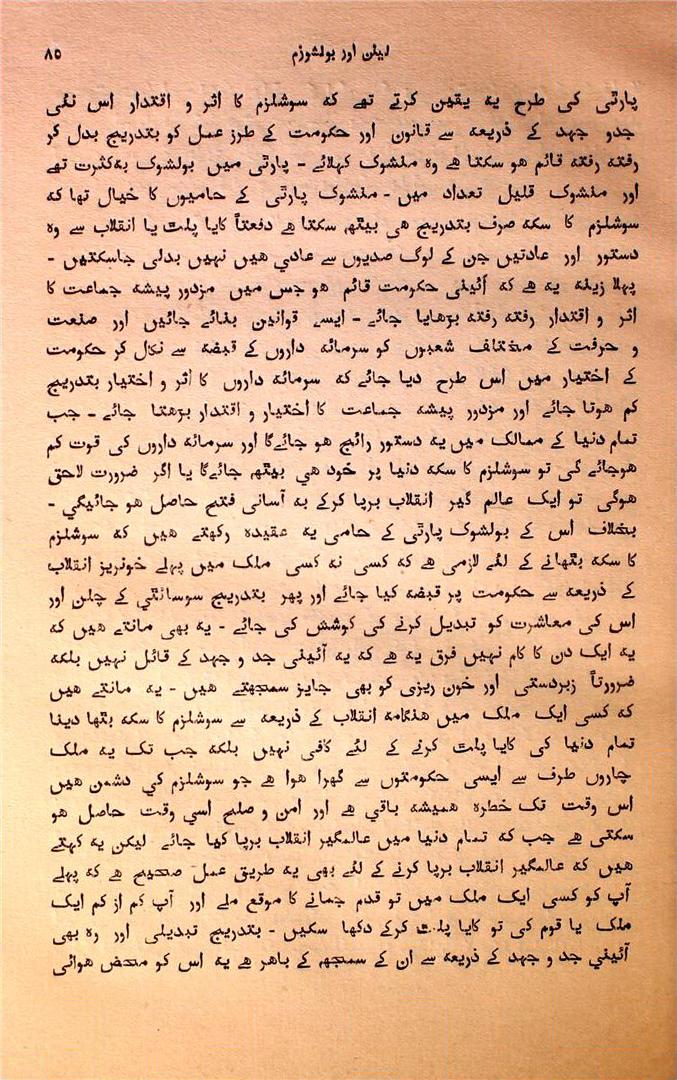 لینن اور بولشوزم ۸۵
پارٹی کی طرح یہ یقین کرتے تھے کہ سوشلزم کا اثر و اقتدار اس نئی
جدو جہد کے ذریعہ سے قانون اور حکومت کے طرز عمل کو بتدریج بدل کر
رفتہ رفتہ قائم ھو سکتا ھے وہ منشوک کہلائے - پارٹی میں بولشوک بہ کثرت تھے
اور منشوک قلیل تعداد میں - منشوک پارٹی کے حامیوں کا خیال تھا کہ
سوشلزم کا سکہ صرف بتدریج ھی بیٹھہ سکتا ھے دفعتاً کایا پلٹ یا انقلاب سے وہ
دستور اور عادتیں جن کے لوگ صدیوں سے عادی ھیں نہیں بدلی جاسکتیں -
پہلا زینہ یہ ھے کہ آئینی حکومت قائم ھو جس میں مزدور پیشہ جماعت کا
اثر و اقتدار رفتہ رفتہ بڑھایا جائے - ایسے قوانین بنائے جائیں اور صنعت
و حرفت کے مختلف شعبوں کو سرمائہ داروں کے قبضہ سے نکال کر حکومت
کے اختیار میں اس طرح دیا جائے کہ سرمائہ داروں کا اثر و اختیار بتدریج
کم ھوتا جائے اور مزدور پیشہ جماعت کا اختیار و اقتدار بڑھتا جائے - جب
تمام دنیا کے ممالک میں یہ دستور رائج ھو جائےگا اور سرمائہ داروں کی قوت کم
ھوجائے گی تو سوشلزم کا سکہ دنیا پر خود ھی بیٹھہ جائےگا یا اگر ضرورت لاحق
ھوگی تو ایک عالم گیر انقلاب برپا کرکے بہ آسانی فتح حاصل ھو جائیگی -
بخلاف اس کے بولشوک پارٹی کے حامی یہ عقیدہ رکھتے ھیں کہ سوشلزم
کا سکہ بٹھانے کے لئے لازمی ھے کہ کسی نہ کسی ملک میں پہلے خونریز انقلاب
کے ذریعہ سے حکومت پر قبضہ کیا جائے اور پھر بتدریج سوسائٹی کے چلن اور
اس کی معاشرت کو تبدیل کرنے کی کوشش کی جائے - یہ بھی مانتے ھیں کہ
یہ ایک دن کا کام نہیں فرق یہ ھے کہ یہ آئینی جد و جہد کے قائل نہیں بلکہ
ضرورتاً زبردستی اور خون ریزی کو بھی جایز سمجھتے ھیں - یہ مانتے ھیں
کہ کسی ایک ملک میں ھنگامہ انقلاب کے ذریعہ سے سوشلزم کا سکہ بٹھا دینا
تمام دنیا کی کایا پلٹ کرنے کے لئے کافی نہیں بلکہ جب تک یہ ملک
چاروں طرف سے ایسی حکومتوں سے گھرا ھوا ھے جو سوشلزم کی دشمن ھیں
اس وقت تک خطرہ ھمیشہ باقی ھے اور امن و صلح اسی وقت حاصل ھو
سکتی ھے جب کہ تمام دنیا میں عالمگیر انقلاب برپا کیا جائے لیکن یہ کہتے
ھیں کہ عالمگیر انقلاب برپا کرنے کے لئے بھی یہ طریق عمل صحیح ھے کہ پہلے
آپ کو کسی ایک ملک میں تو قدم جمانے کا موقع ملے اور آپ کم از کم ایک
ملک یا قوم کی تو کایا پلٹ کرکے دکھا سکیں - بتدریج تبدیلی اور وہ بھی
آئینی جد و جہد کے ذریعہ سے ان کے سمجھہ کے باھر ھے یہ اس کو محض ھوائی